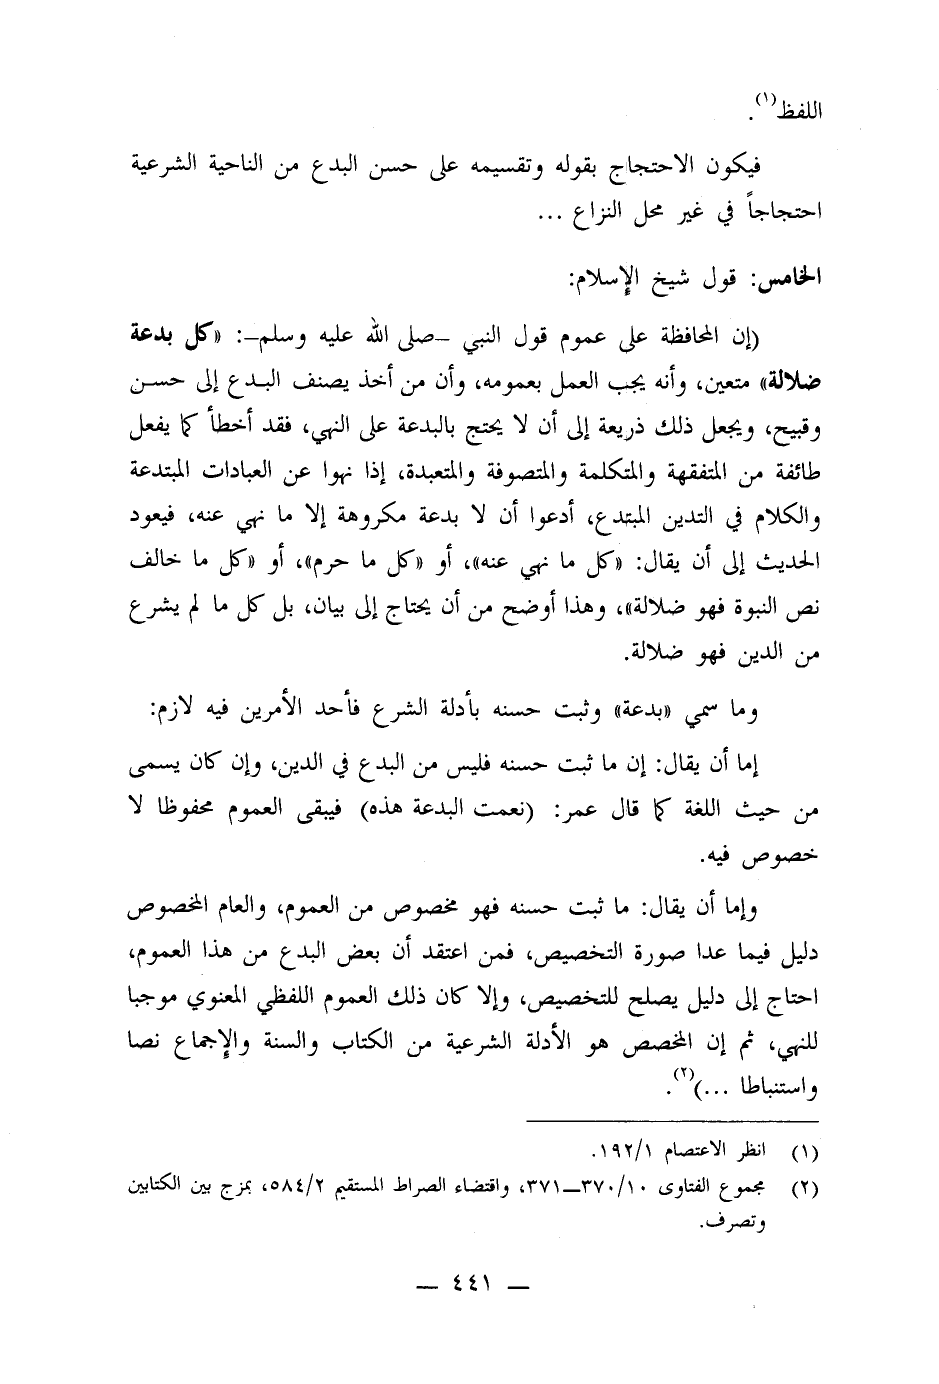 اللفظ(١).
فيكون الاحتجاج بقوله وتقسيمه على حسن البدع من الناحية الشرعية
احتجاجاً في غير محل النزاع ...
الخامس: قول شيخ الإسلام:
(إن المحافظة على عموم قول النبي —صلى الله عليه وسلم—: «كل بدعة
ضلالة» متعين، وأنه يجب العمل بعمومه، وأن من أخذ يصنف البدع إلى حسن
وقبيح، ويجعل ذلك ذريعة إلى أن لا يحتج بالبدعة على النهي، فقد أخطأ كما يفعل
طائفة من المتفقهة والمتكلمة والمتصوفة والمتعبدة، إذا نهوا عن العبادات المبتدعة
والكلام في التدين المبتدع، أدعوا أن لا بدعة مكروهة إلا ما نهي عنه، فيعود
الحديث إلى أن يقال: «كل ما نهي عنه»، أو «كل ما حرم»، أو «كل ما خالف
نص النبوة فهو ضلالة»، وهذا أوضح من أن يحتاج إلى بيان، بل كل ما لم يشرع
من الدين فهو ضلالة.
وما سمي «بدعة» وثبت حسنه بأدلة الشرع فأحد الأمرين فيه لازم:
إما أن يقال: إن ما ثبت حسنه فليس من البدع في الدين، وإن كان يسمى
من حيث اللغة كما قال عمر: (نعمت البدعة هذه) فيبقى العموم محفوظا لا
خصوص فيه.
وإما أن يقال: ما ثبت حسنه فهو مخصوص من العموم، والعام المخصوص
دليل فيما عدا صورة التخصيص، فمن اعتقد أن بعض البدع من هذا العموم،
احتاج إلى دليل يصلح للتخصيص، وإلا كان ذلك العموم اللفظي المعنوي موجبا
للنهي، ثم إن المخصص هو الأدلة الشرعية من الكتاب والسنة والإجماع نصا
واستنباطا ...)(٢).
(١) انظر الاعتصام ١٩٢/١.
(٢) مجموع الفتاوى ٣٧٠/١٠—٣٧١، واقتضاء الصراط المستقيم ٥٨٤/٢، بمزج بين الكتابين
وتصرف.
— ٤٤١ —